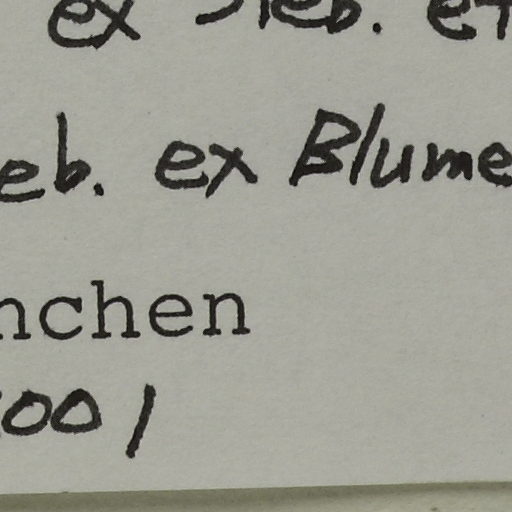 ex Sieb. et
eb. ex Blume
nchen
001